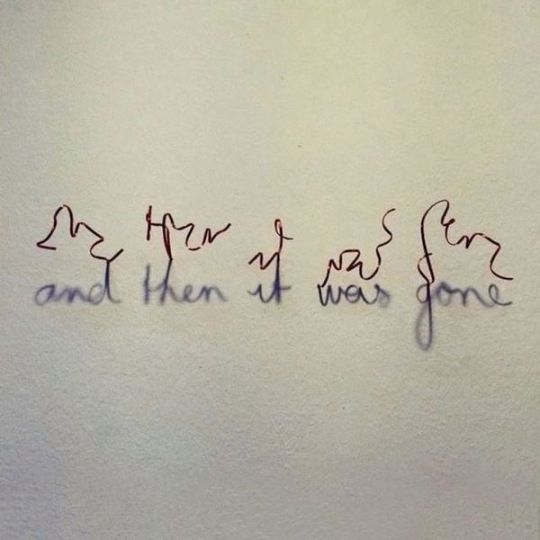 and then it was gone